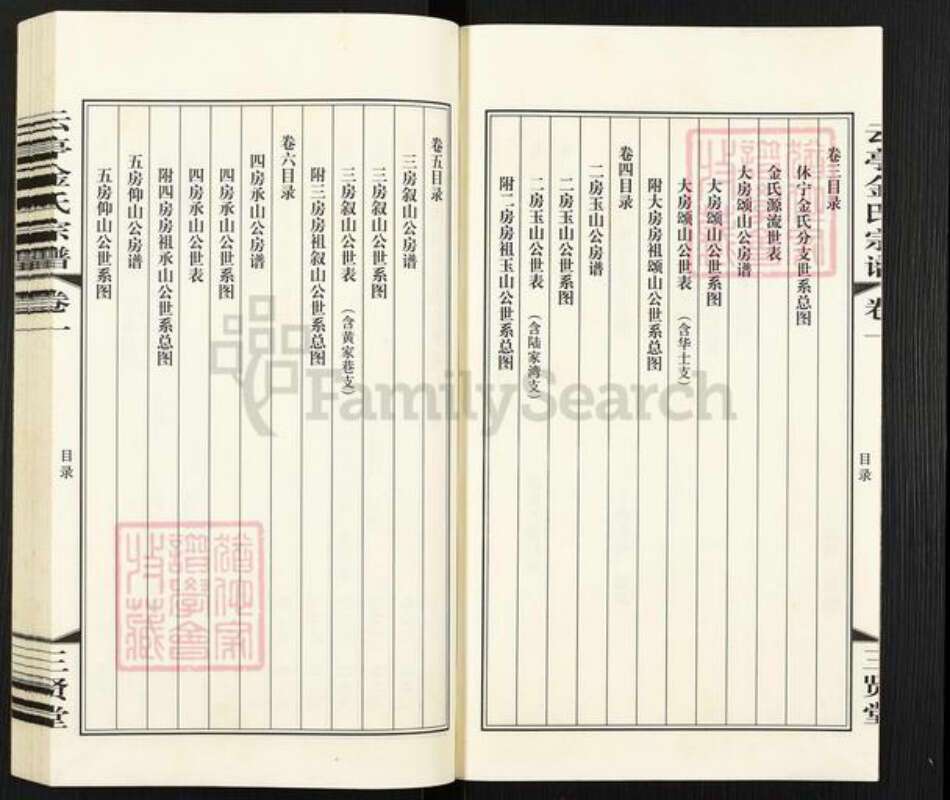 云亭金氏宗谱
卷一
目录
三贤堂
卷三目录
休宁金氏分支世系总图
金氏源流世表
大房颂山公房谱
大房颂山公世系图
大房颂山公世表（含华士支）
附大房房祖颂山公世系总图
卷四目录
二房玉山公房谱
二房玉山公世系图
二房玉山公世表（含陆家湾支）
附二房房祖玉山公世系总图
卷五目录
三房叙山公房谱
三房叙山公世系图
三房叙山公世表（含黄家巷支）
附三房房祖叙山公世系总图
卷六目录
四房承山公房谱
四房承山公世系图
四房承山公世表
附四房房祖承山公世系总图
五房仰山公房谱
五房仰山公世系图
云亭金氏宗谱
卷一
目录
三贤堂
FamilySearch